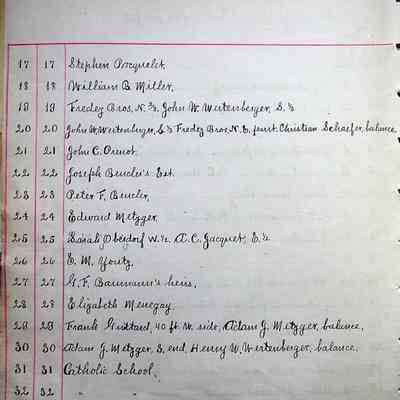 17 17 Stephen
18 18 William B Miller,
19 19 Fredey Bros. N. ⅔, John W. Wertenberger, S. ⅓
20 20 John W. Wertenberger, S. ⅓ Fredey Bros N. E. part. Christian Schaefer, balance
21 21 John C.
22 22 Joseph Beucler's Est.
23 23 Peter F. Beucler,
24 24 Edward Metzger
25 25 Sarah Oberdorf W. ½. A. C. Jacquet, E. ½
26 26 E. M. Youtz,
27 27 G. F. Baumann's heirs,
28 28 Elizabeth Menegay
29 29 Frank Guittard, 40 ft. W. side, Adam J. Metzger, balance,
30 30 Adam J. Metzger, S. end, Henry W. Wertenberger, balance,
31 31 Catholic School,
32 32